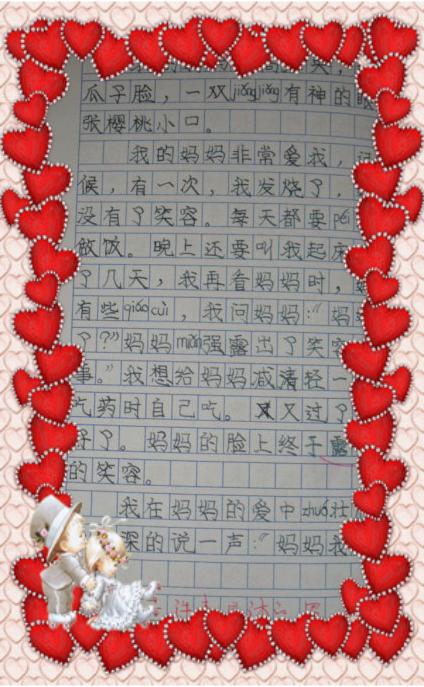 瓜子脸，一双jiǒngjiǒng有神的眼
张樱桃小口。
我的妈妈非常爱我，
候，有一次，我发烧了，
没有了笑容。每天都要péi
做饭。晚上还要叫我起床
了几天，我再看妈妈时，
有些qiáocuì，我问妈妈：“妈
了？”妈妈miǎn强露出了笑容
事。”我想给妈妈减清轻一
吃药时自己吃。又过了
好了。妈妈的脸上终于露
的笑容。
我在妈妈的爱中zhuó壮
深的说一声：“妈妈我